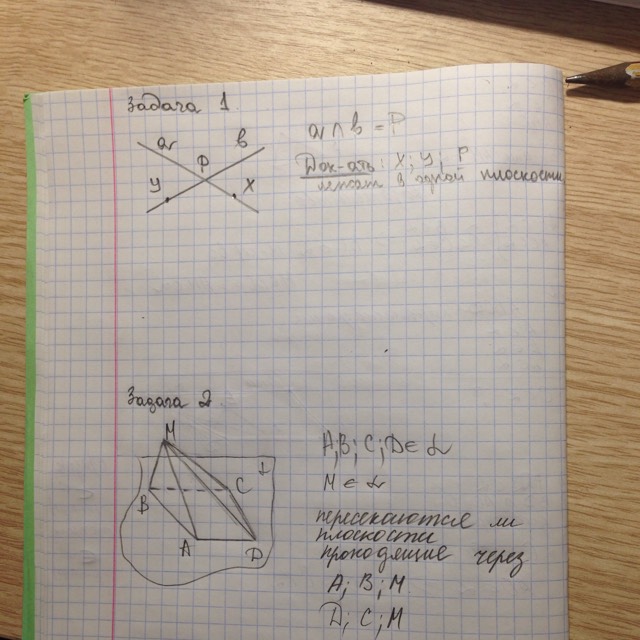 Задача 1
a
b
P
У
X
a ∩ b = P
Док-ать: X; У; P
лежат в одной плоскости
Задача 2
M
B
C
A
D
α
A; B; C; D ∈ α
M ∈ α
пересекаются ли
плоскости
проходящие через
A; B; M
D; C; M